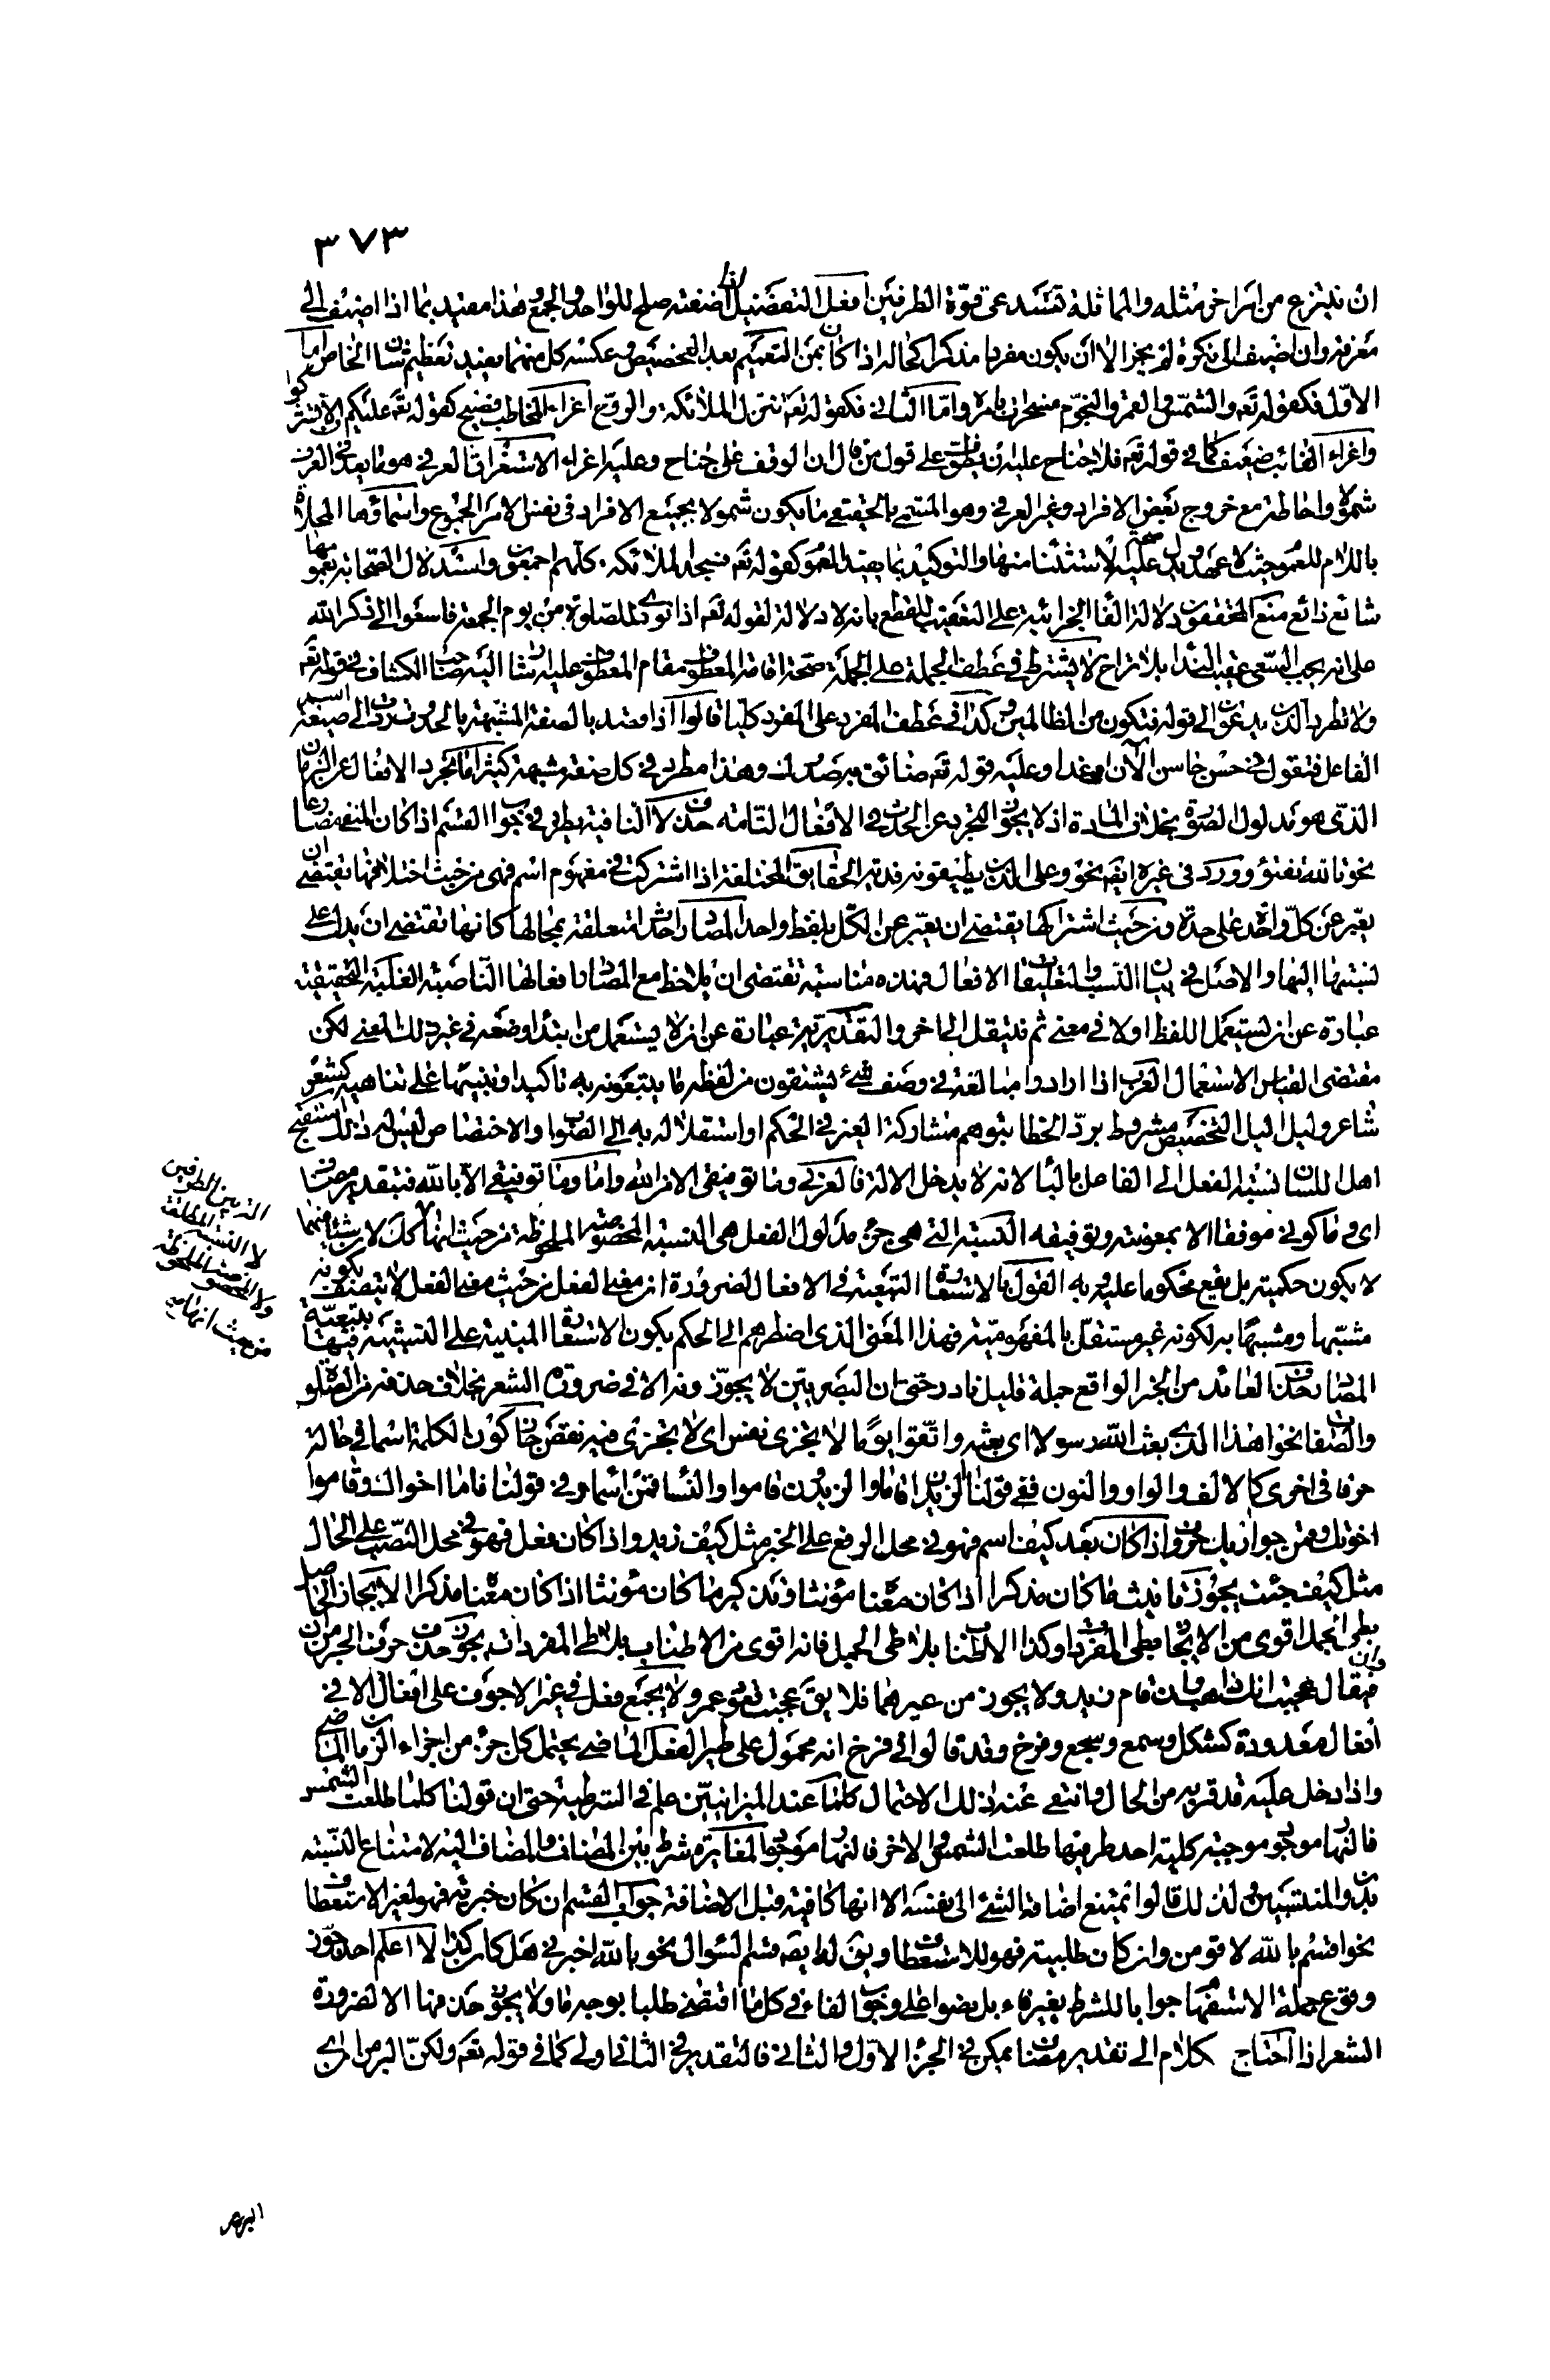 ٣٧٣
ان ينتزع من امر اخر مثله والمماثلة تستدعى قوّة الطرفين افعل التفضيل اذا اضفته صلح للواحد والجمع وهذا مقيد بما اذا اضيف الى
معرفة وان اضيف الى نكرة لم يجز الا ان يكون مفردا مذكرا كحاله اذا كان بمن التعميم بعد التخصيص وعكسه كل منهما يفيد تعظيم شان الخاص اما
الاوّل فكقوله تعه والشمس والقمر والنجوم مسخرات بامره وامّا الثانى فكقوله تعه تنزل الملائكة والروح اغراء المخاطب فصيح كقوله تعه عليكم الا تشركوا
واغراء الغائب ضعيف كما فى قوله تعه فلا جناح عليه ان يطوف على قول من قال ان الوقف على جناح وعليه اغراء الاستغراق العرفى هو ما يعد فى العرف
شمولا واحاطة مع خروج بعض الافراد وغير العرفى وهو المسمى بالحقيقى ما يكون شمولا بجميع الافراد فى نفس الامر الجموع واسماؤها المحلاة
باللام للعموم حيث لا عهد ويدل عليه صحة الاستثناء منها والتوكيد بما يفيد العموم كقوله تعه فسجد الملائكة كلهم اجمعون واستدلال الصحابة بعمومها
شائع ذائع منع المحققون دلالة الفاء الجزائية على التعقيب للقطع بانه لا دلالة لقوله تعه اذا نودى للصلوة من يوم الجمعة فاسعوا الى ذكر الله
على انه يجب السعى عقيب النداء بلا تراخ لا يشترط فى عطف الجملة على الجملة صحة اقامة المعطوف مقام المعطوف عليه اشار اليه صاحب الكشاف فى قوله تعه
ولا تطرد الذين يدعون الى قوله فتكون من الظالمين وكذا فى عطف المفرد على المفرد كليا قالوا اذا قصد بالصفة المشبهة الحدوث ردت الى صيغة اسم
الفاعل فتقول فى حسن حاسن الآن او غدا وعليه قوله تعه ضائق به صدرك وهذا مطرد فى كل صفة مشبهة كثيرا ما تجرد الافعال عن الزمان
الذى هو مدلول الصورة بخلاف المادة اذ لا يجوز التجريد عن الحدث فى الافعال التامة حذف لا النافية يطرد فى جواب القسم اذا كان المنفى مضارعا
نحو تالله تفتؤ وورد فى غيره ايضه نحو وعلى الذين يطيقونه فدية الحقايق المختلفة اذا اشتركت فى مفهوم اسم فهى من حيث اختلافها تقتضى ان
يعبر عن كل واحد على حدة ومن حيث اشتراكها يقتضى ان يعبر عن الكل بلفظ واحد المصادر احداث متعلقة بمحالها كانها تقتضى ان يدل على
نسبتها اليها والاصل فى بيان النسب والتعلقات الافعال فهذه مناسبة تقتضى ان يلاحظ مع المصادر افعالها الناصبة الغلبة التحقيقية
عبارة عن ان يستعمل اللفظ اولا فى معنى ثم ينتقل الى اخر والتقديرية عبارة عن ان لا يستعمل من ابتداء وضعه فى غير ذلك المعنى لكن
مقتضى القياس الاستعمال العرب اذا ارادوا مبالغة فى وصف شئ يشتقون من لفظه ما يتبعونه به تاكيدا وتنبيها على تناهيه كشعر
شاعر وليل اليل التخصيص مشروط برد الخطا بتوهم مشاركة الغير فى الحكم او استقلاله به الى الصواب والاختصاص ليس له ذلك استقبح
اهل اللسان نسبة الفعل الى الفاعل بالباء لانه لا يدخل الالة فالعزيز وما توفيقى الا من الله واما وما توفيقى الا بالله فبتقدير مضاف
اى وما كونى موفقا الا بمعونته وتوفيقه النسبة التى هى جزء مدلول الفعل هى النسبة المخصوصة الملحوظة من حيث انها كك لا ريب شيئا منهما
لا يكون حكمية بل يقع محكوما عليه وبه القول بالاستعارة التبعية فى الافعال لضرورة ان معنى الفعل من حيث معنى الفعل لا يتصف بكونه
مشبها ومشبها به لكونه غير مستقل بالمفهومية فهذا المعنى الذى اضطرهم الى الحكم بكون الاستعارة المبنية على التشبيه فيها بتبعية
المصادر حذف العائد من الخبر الواقع جملة قليل نادر حتى ان البصريين لا يجوزونه الا فى ضرورة الشعر بخلاف حذفه من الصلة
والصفة نحو اهذا الذى بعث الله رسولا اى بعثه واتقوا يوما لا تجزى نفس اى لا تجزى فيه نقض جاز كون الكلمة اسما فى حالة
حرفا فى اخرى كالالف والواو والنون ففى قولنا الزيدان قاما والزيدون قاموا والنساء قمن اسماء وفى قولنا قاما اخواك وقاموا
اخوتك وقمن جواريك حروف اذا كان بعد كيف اسم فهو فى محل الرفع على الخبر مثل كيف زيد واذا كان فعل فهو فى محل النصب على الحال
مثل كيف جئت يجوز تانيث ما كان مذكرا اذا كان معناه مؤنثا وتذكير ما كان مؤنثا اذا كان معناه مذكرا الايجاز الحاصل
بطى الجمل اقوى من الايجاز بطى المفرد وكذا الاطناب بلاطى الجمل فانه اقوى من الاطناب بلاطى المفردات يجوز حذف حرف الجر من ان
وان فيقال عجبت انك ذاهب وان قام زيد ولا يجوز من غيرهما فلا يقه عجبت قعود عمرو لا يجمع فعل فى غير الاجوف على افعال الا فى
افعال معدودة كشكل وسمع وسجع وفرخ وقد قالوا فى فرخ انه محمول على طير الفعل الماضى يحتمل كل جزء من اجزاء الزمان الماضى
واذا دخل عليه قد قربه من الحال وانتفى عنه ذلك الاحتمال كلما عند الميزانيين علم فى الشرطية حتى ان قولنا كلما طلعت الشمس
فالنهار موجود موجبة كلية احد طرفيها طلعت الشمس والاخر فالنهار موجود المغايرة شرط بين المضاف والمضاف اليه لامتناع النسبة
بدون المنتسبين ولذلك قالوا يمتنع اضافة الشئ الى نفسه الا انها كافية قبل الاضافة جواب القسم ان كان خبرية فهو لغير الاستعطاف
نحو اقسم بالله لاقومن وان كان طلبية فهو للاستعطاف ويقه له ايضه قسم السوال نحو بالله اخبرنى هل كان كذا لا اعلم احدا جوز
وقوع جملة الاستفهام جوابا للشرط بغير فاء بل نصوا على وجوب الفاء فى كل ما اقتضى طلبا بوجه ما ولا يجوز حذفها الا لضرورة
الشعر اذا احتاج كلام الى تقدير مضاف يمكن فى الجزء الاوّل والثانى فالتقدير فى الثانى اولى كما فى قوله تعه ولكن البر من اى
لا النسبة المطلقة
من حيث انها